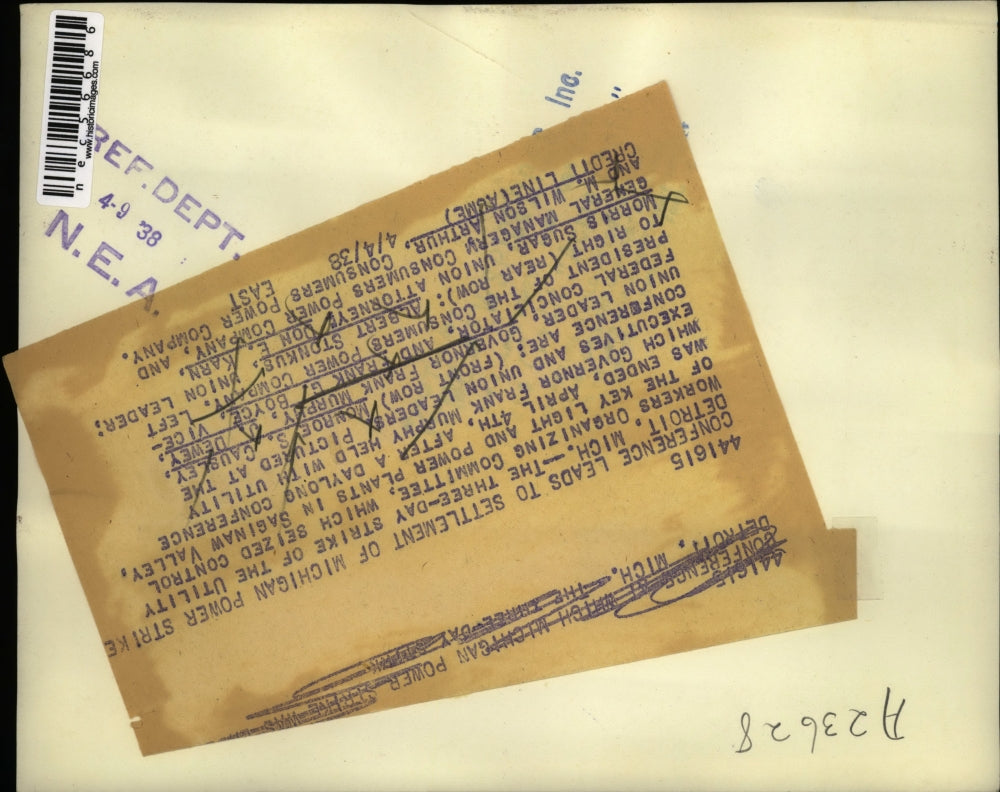 necS66686
www.historicimages.com
REF. DEPT.
4-9 '38
N. E. A.
Inc.
441615
CONFERENCE WHICH MICHIGAN POWER
DETROIT, MICH. THE THREE-DAY
441615
CONFERENCE LEADS TO SETTLEMENT OF MICHIGAN POWER STRIKE
DETROIT, MICH.--THE THREE-DAY STRIKE OF THE UTILITY
WORKERS ORGANIZING COMMITTEE, WHICH SEIZED CONTROL
OF THE KEY LIGHT AND POWER PLANTS IN SAGINAW VALLEY,
WAS ENDED, APRIL 4TH, AFTER A DAYLONG CONFERENCE
WHICH GOVERNOR FRANK MURPHY HELD WITH UTILITY
EXECUTIVES AND UNION LEADERS. PICTURED AT THE
CONFERENCE ARE; (FRONT ROW) MONROE CAUSLEY,
UNION LEADER; GOVERNOR FRANK MURPHY, DEWEY,
FEDERAL CONCILIATOR, AND FRANK G. BOYCE, VICE-
PRESIDENT OF THE CONSUMERS POWER COMPANY. LEFT
TO RIGHT (REAR ROW): ALBERT STONKUS, UNION LEADER;
MORRIS SUGAR, UNION ATTORNEY, DON E. KARN,
GENERAL MANAGER, CONSUMERS POWER COMPANY, AND
AND M. WILSON ARTHUR, CONSUMERS POWER COMPANY.
CREDIT LINE(ACME) 4/4/38 EAST
A23628